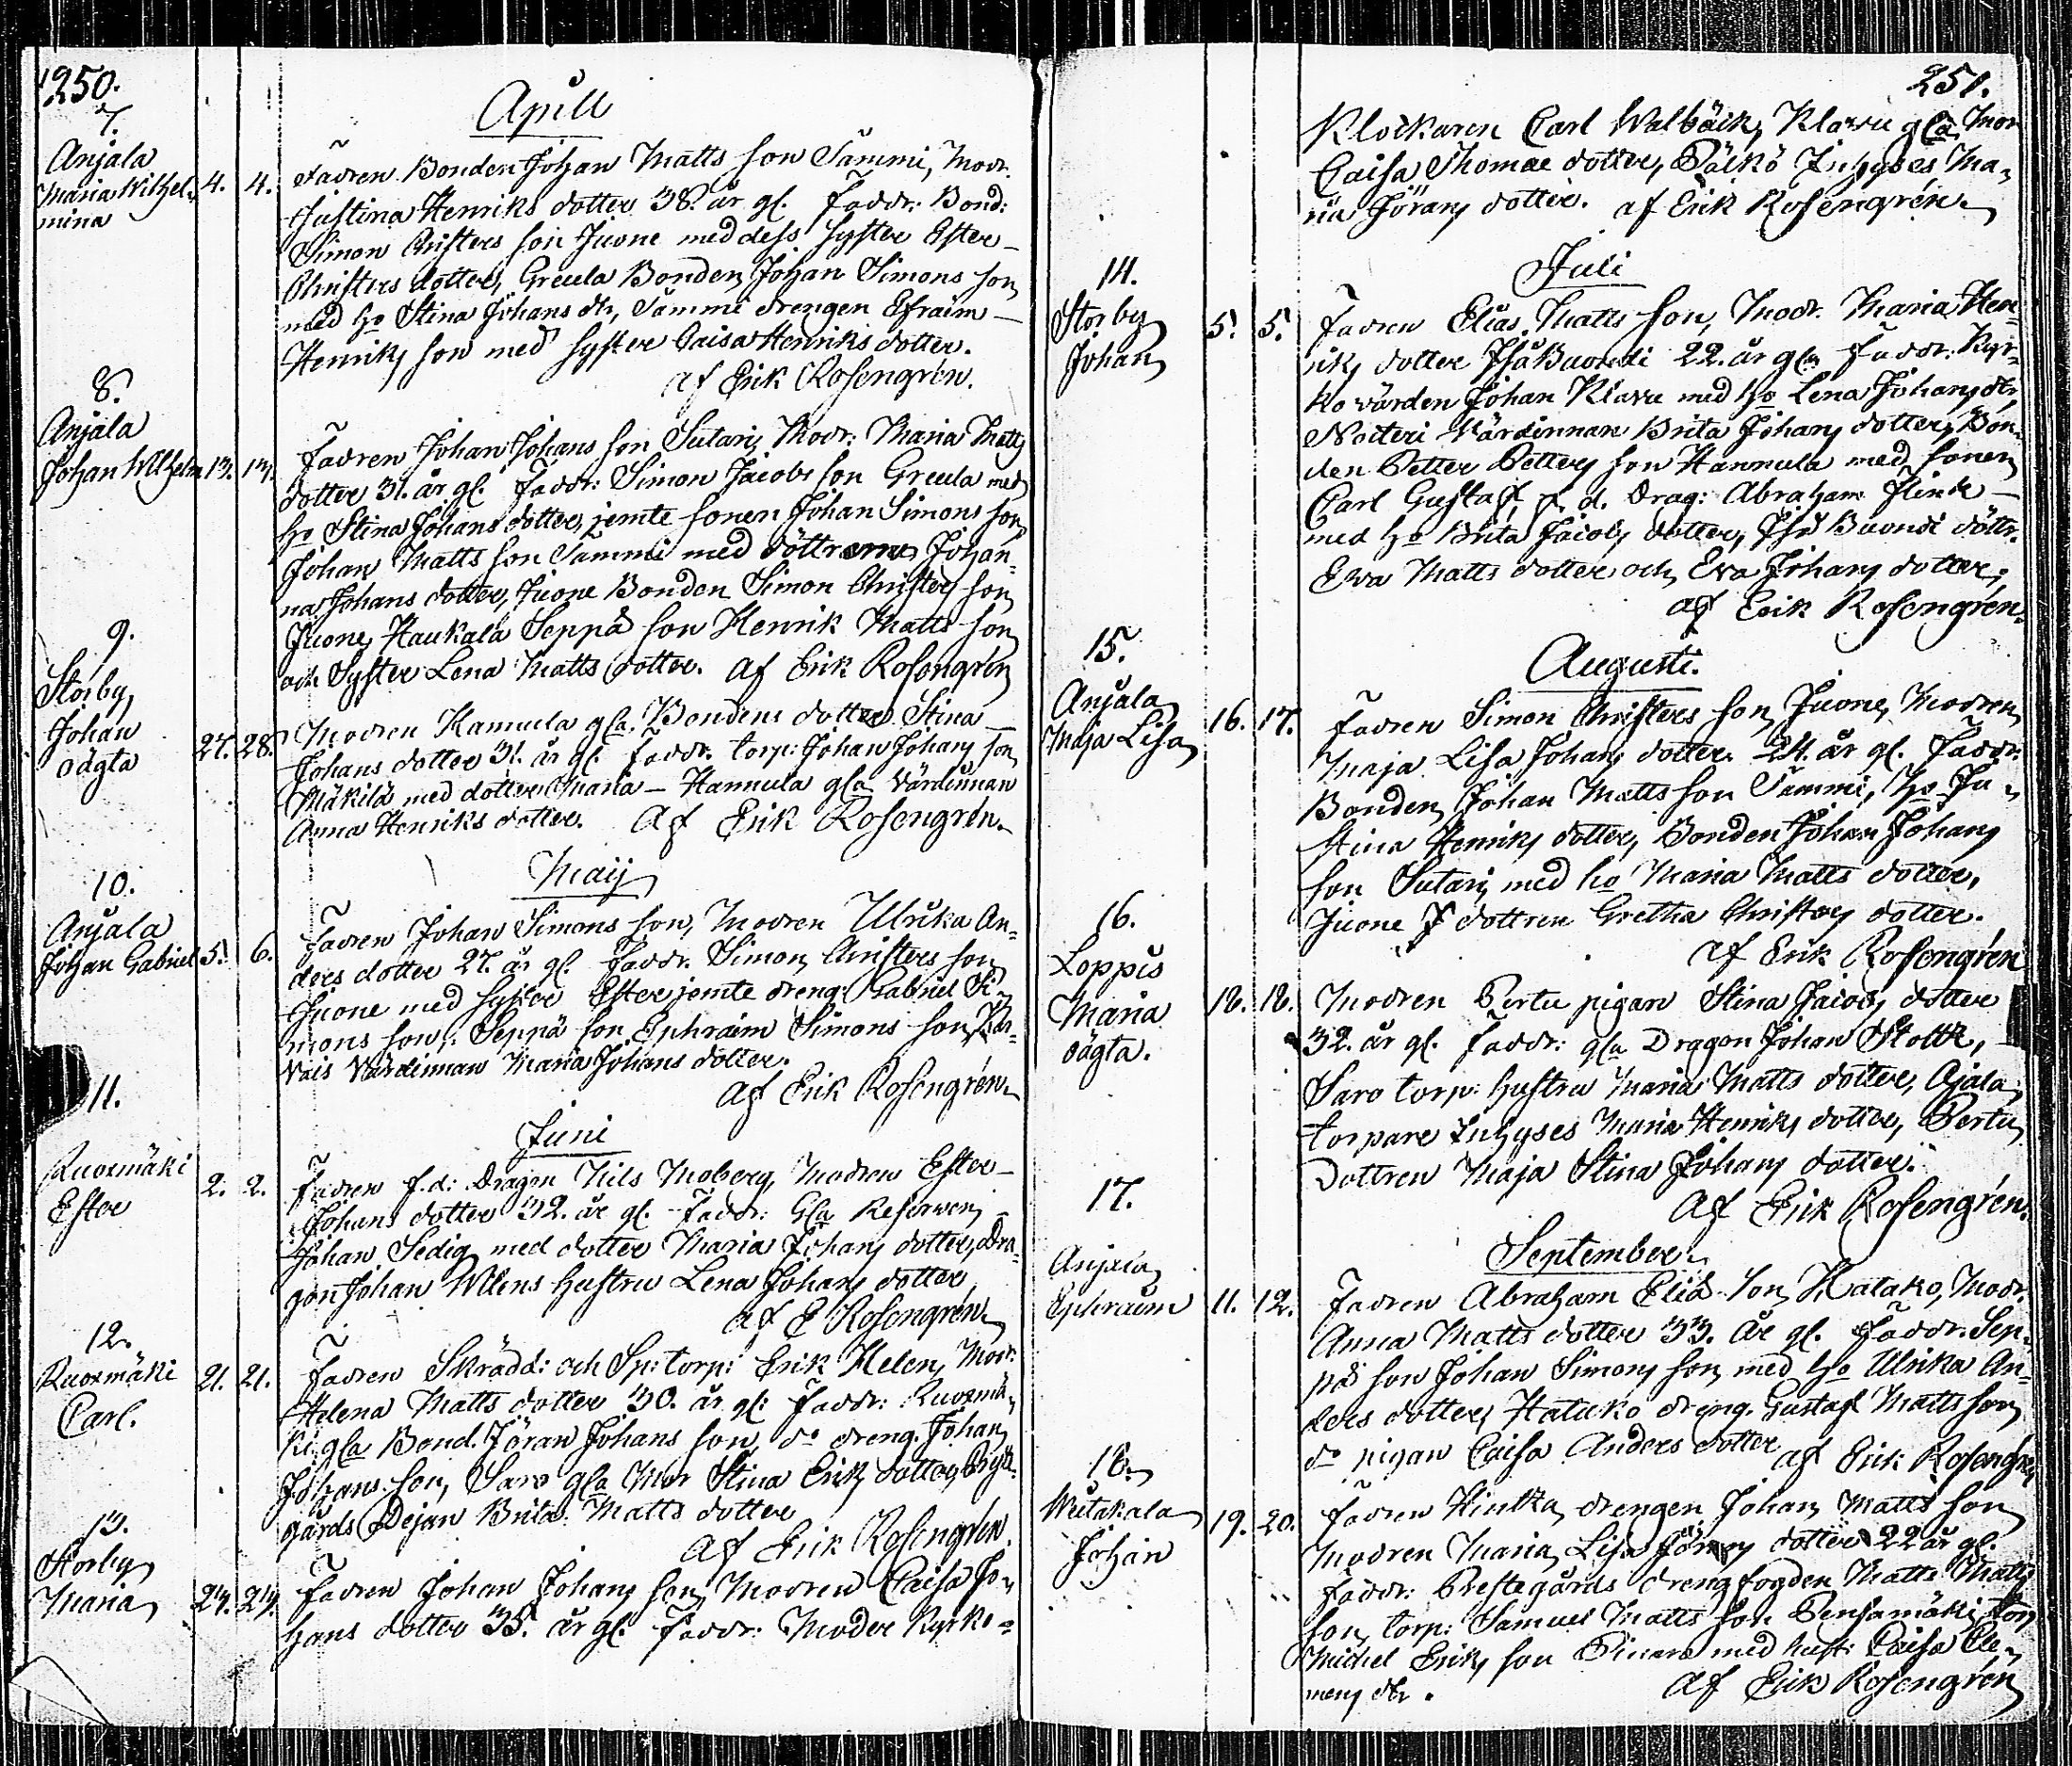 250.
Aprill
7.
Anjala
Maria Wilhel-
mina
4. 4.
Fadren Bonden Johan Matts son Sammi, Modr.
Justina Henriks dotter 38. år gl. Faddr: Bond:
Simon Christers son Juone med dess syster Ester
Christers dotter, Greula Bonden Johan Simons son
med ho Stina Johans dtr, Sammi drengen Efraim
Henriks son med syster Caisa Henriks dotter.
af Erik Rosengrén.
8.
Anjala
Johan Wilhelm 13. 13.
Fadren Johan Johans son Sutari, Modr: Maria Matts
dotter 31. år gl. Faddr: Simon Jacobs son Greula med
ho Stina Johans dotter, jemte sonen Johan Simons son
Johan Matts son Sammi med döttrarne Johan-
na Johans dotter, Juone Bonden Simon Christers son
Juone, Haukala Seppä son Henrik Matts son
och Syster Lena Matts dotter. af Erik Rosengrén
9.
Storby
Johan
oägta
27. 28.
Modren Hannula gla Bondens dotter Stina
Johans dotter 31. år gl. Faddr. torp: Johan Johans son
Mäkilä med dotter Maria — Hannula gla Värdinnan
Anna Henriks dotter. Af Erik Rosengrén.
Maij
10.
Anjala
Johan Gabriel 5. 6.
Fadren Johan Simons son, Modren Ulrika An-
ders dotter 27. år gl. Faddr. Simon Christers son
Juone med syster Ester jemte dreng: Gabriel Si-
mons son, Seppä son Ephraim Simons son,
Värdinnan Maria Johans dotter.
af Erik Rosengrén
Juni
11.
Ruoxmäki
Ester
2. 2.
Fadren f.d: Dragon Nils Moberg, Modren Ester
Johans dotter 32. år gl. Faddr: Gla Reserven
Johan Sedig med dotter Maria Johans dotter, Dra-
gon Johan Wilens hustru Lena Johans dotter
af E Rosengrén
12.
Ruoxmäki
Carl.
21. 21.
Fadren Skrädd: och Sp: torp: Erik Helen, Modr:
Helena Matts dotter 30. år gl: Faddr: Ruoxmä-
ki gla Bond. Jöran Johans son, do dreng. Johan
Johans son, Saro gla Mor Stina Eriks dotter,
gårds Dejan Brita Matts dotter
Af Erik Rosengrén
13.
Storby
Maria
23. 23.
Fadren Johan Johans son, Modren Caisa Jo-
hans dotter 35. år gl. Faddr: Moder Kyrko-
251.
Klockaren Carl Walbäck, Klavu gla Mor
Caisa Thomae dotter, Pälkö Inhyses Ma-
ria Jörans dotter. af Erik Rosengrén.
Juli
14.
Storby
Johan
5. 5.
Fadren Elias Matts son, Modr. Maria Hen-
riks dotter 22. år gla Faddr: Kyr-
ko värden Johan Klavu med ho Lena Johans dtr,
Värdinnan Brita Johans dotter, Bon-
den Petter Petters son Hannula med sonen
Carl Gustaf, f. d. Drag: Abraham Flink
med ho Brita Jacobs dotter, döttr.
Eva Matts dotter och Eva Johans dotter,
af Erik Rosengrén.
Augusti.
15.
Anjala
Maja Lisa
16. 17.
Fadren Simon Christers son Juone, Modren
Maja Lisa Johans dotter 24. år gl. Faddr:
Bonden Johan Matts son Sammi, ho Ju-
stina Henriks dotter, Bonden Johan Johans
son Sutari med ho Maria Matts dotter,
Juone dottren Gretha Christers dotter.
af Erik Rosengrén
16.
Loppis
Maria
oägta.
18. 18.
Modren Pertu pigan Stina Jacobs dotter
32. år gl. Faddr: gla Dragon Johan Stolt,
Saro torp: hustru Maria Matts dotter, Ajala
torpare Inhyses Maria Henriks dotter, Pertu
Dottren Maja Stina Johans dotter.
Af Erik Rosengrén.
September
17.
Anjala
Ephraim
11. 12.
Fadren Abraham Eliä son Hatako, Modr.
Anna Matts dotter 33. år gl. Faddr. Sep-
pä son Johan Simons son med ho Ulrika An-
ders dotter, Hatako dreng. Gustaf Matts son,
do pigan Caisa Anders dotter af Erik Rosengrén
18.
Wutakala
Johan
19. 20.
Fadren Hintka drengen Johan Matts son
Modren Maria Lisa Jörans dotter 22 år gl.
Faddr: Prestegårds drengfogden Matts Matts
son, torp: Samuel Matts son Pensamäki, torp
Michel Eriks son med hust: Caisa Cle-
mens dtr.
Af Erik Rosengrén